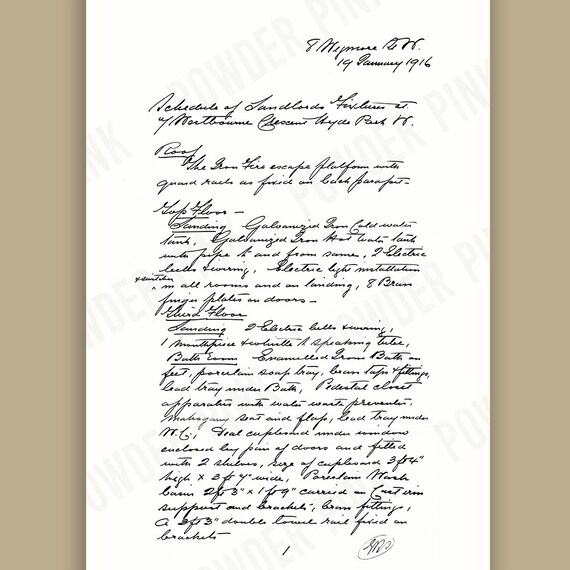 8 Wigmore St W.
19 January 1916
Schedule of Landlords Fixtures at
7 Westbourne Crescent Hyde Park W.
Roof
The Iron Fire escape platform with
guard rails as fixed on back parapet -
Top Floor -
Landing Galvanized Iron Cold water
tank, Galvanized Iron Hot water tank
with pipe to and from same, 2 Electric
bells & wiring, Electric light installation
& switches
in all rooms and on landing, 8 Brass
finger plates on doors -
Third Floor
Landing 2 Electric bells & wiring,
1 mouthpiece & whistle to speaking tube,
Bath Room Enamelled Iron Bath on
feet, porcelain soap tray, brass taps & fittings,
lead tray under Bath, Pedestal closet
apparatus with water waste preventer,
mahogany seat and flap, lead tray under
W.C., Deal cupboard under window
enclosed by pair of doors and fitted
with 2 shelves, size of cupboard 3 ft 4"
high x 3 ft 7" wide, Porcelain Wash
basin 2 ft 3" x 1 ft 9" carried on Cast iron
support and brackets, brass fittings,
A 3 ft 3" double towel rail fixed on
brackets
1
POWDER PINK